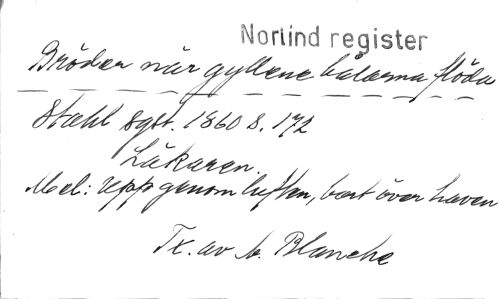 Norlind register
Bröder när gyllene bålarna flöda
Stahl sgst. 1860 s. 172
Läkaren.
Mel: Upp genom luften, bort över haven
Tx. av A. Blanche